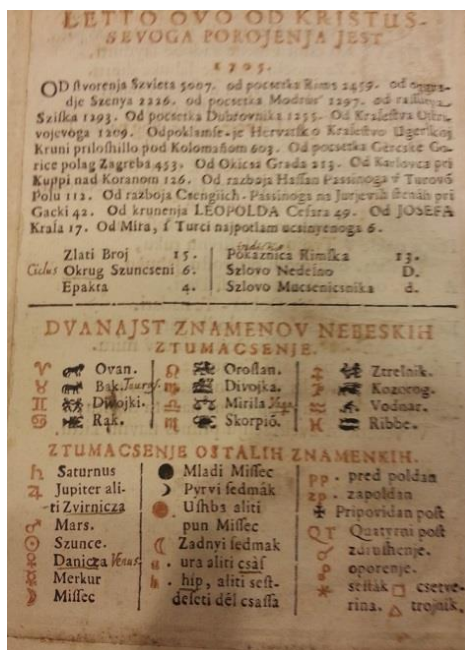 LETTO OVO OD KRISTUS-
SEVOGA POROJENJA JEST
1705.
OD stvorenja Szvieta 5007. od pocsetka Rima 2459. od
dje Szenya 2226. od pocsetka Modrus' 1297. od
Sziska 1293. Od pocsetka Dubrovnika 1255. Od Kralestva
vojevoga 1209. Odpoklamse-je Hervatsko Kralestvo Ugerskoj
Kruni priloshillo pod Kolomanom 603. Od pocsetka Gercske Go-
rice polag Zagreba 453. Od Okicsa Grada 213. Od Karlovca pri
Kuppi nad Koranom 126. Od razboja Hassan Passinoga v Turovō
Polu 112. Od razboja Csengiich-Passinoga na Jurjevih stenah pri
Gacki 42. Od krunenja LEOPOLDA Cesara 49. Od JOSEFA
Krala 17. Od Mira, s Turci najpotlam ucsinyenoga 6.
Zlati Broj 15.
Ciclus Okrug Szuncseni 6.
Epakta 4.
indictio
Pokaznica Rimska 13.
Szlovo Nedelno D.
Szlovo Macsenicsnika d.
DVANAJST ZNAMENOV NEBESKIH
ZTUMACSENJE.
♈ Ovan.
♉ Bak. Taurus
♊ Dwojki.
♋ Rak.
♌ Oroslan.
♍ Divojka.
♎ Mirila Vaga
♏ Skorpiō.
♐ Ztrelnik.
♑ Kozorog.
♒ Vodnar.
♓ Ribbe.
ZTUMACSENJE OSTALIH ZNAMENKIH.
♄ Saturnus
♃ Jupiter ali-
ti Zvirnicza
♂ Mars.
☉ Szunce.
♀ Danicza Venus
☿ Merkur
☽ Missec
● Mladi Missec
☽ Pyrvi sedmak
Ushba aliti
pun Missec
☾ Zadnyi sedmak
. ura aliti csàs
h . hip, aliti sest-
deseti dèl csassa
pp . pred poldan
zp . zapoldan
✠ Pripovidan post
QT Quatyrni post
☌ zdrushenje.
☍ oporenje.
✶ sestàk □ csetve-
rina. △ trojnik.